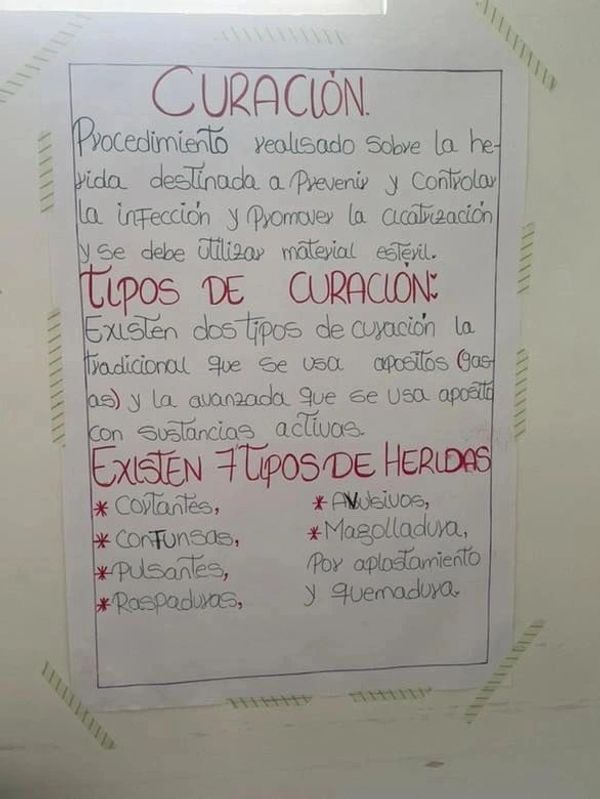 CURACIÓN.
Procedimiento realisado sobre la he-
rida destinada a Prevenir y Controlar
la infección y Promover la cicatrización
y se debe Utilizar material estéril.
TIPOS DE CURACIÓN:
Existen dos tipos de curación la
tradicional que se usa apositos (gas-
as) y la avanzada que se usa aposito
con sustancias activas.
EXISTEN 7 TIPOS DE HERIDAS
* Cortantes,
* Contunsas,
* Pulsantes,
* Raspaduras,
* Avulsivos,
* Magolladura,
Por aplastamiento
y quemadura.